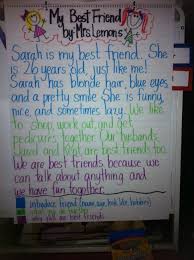 My Best Friend
by Mrs. Lemons
Sarah is my best friend. She
is 26 years old, just like me!
Sarah has blonde hair, blue eyes
and a pretty smile. She is funny,
nice, and sometimes lazy. We like
to shop, work out, and get
pedicures together. Our husbands,
Jared and are best friends too.
We are best friends because we
can talk about anything and
we have fun together.
introduce friend (name, age, look like,
what we do together
why we're best friends